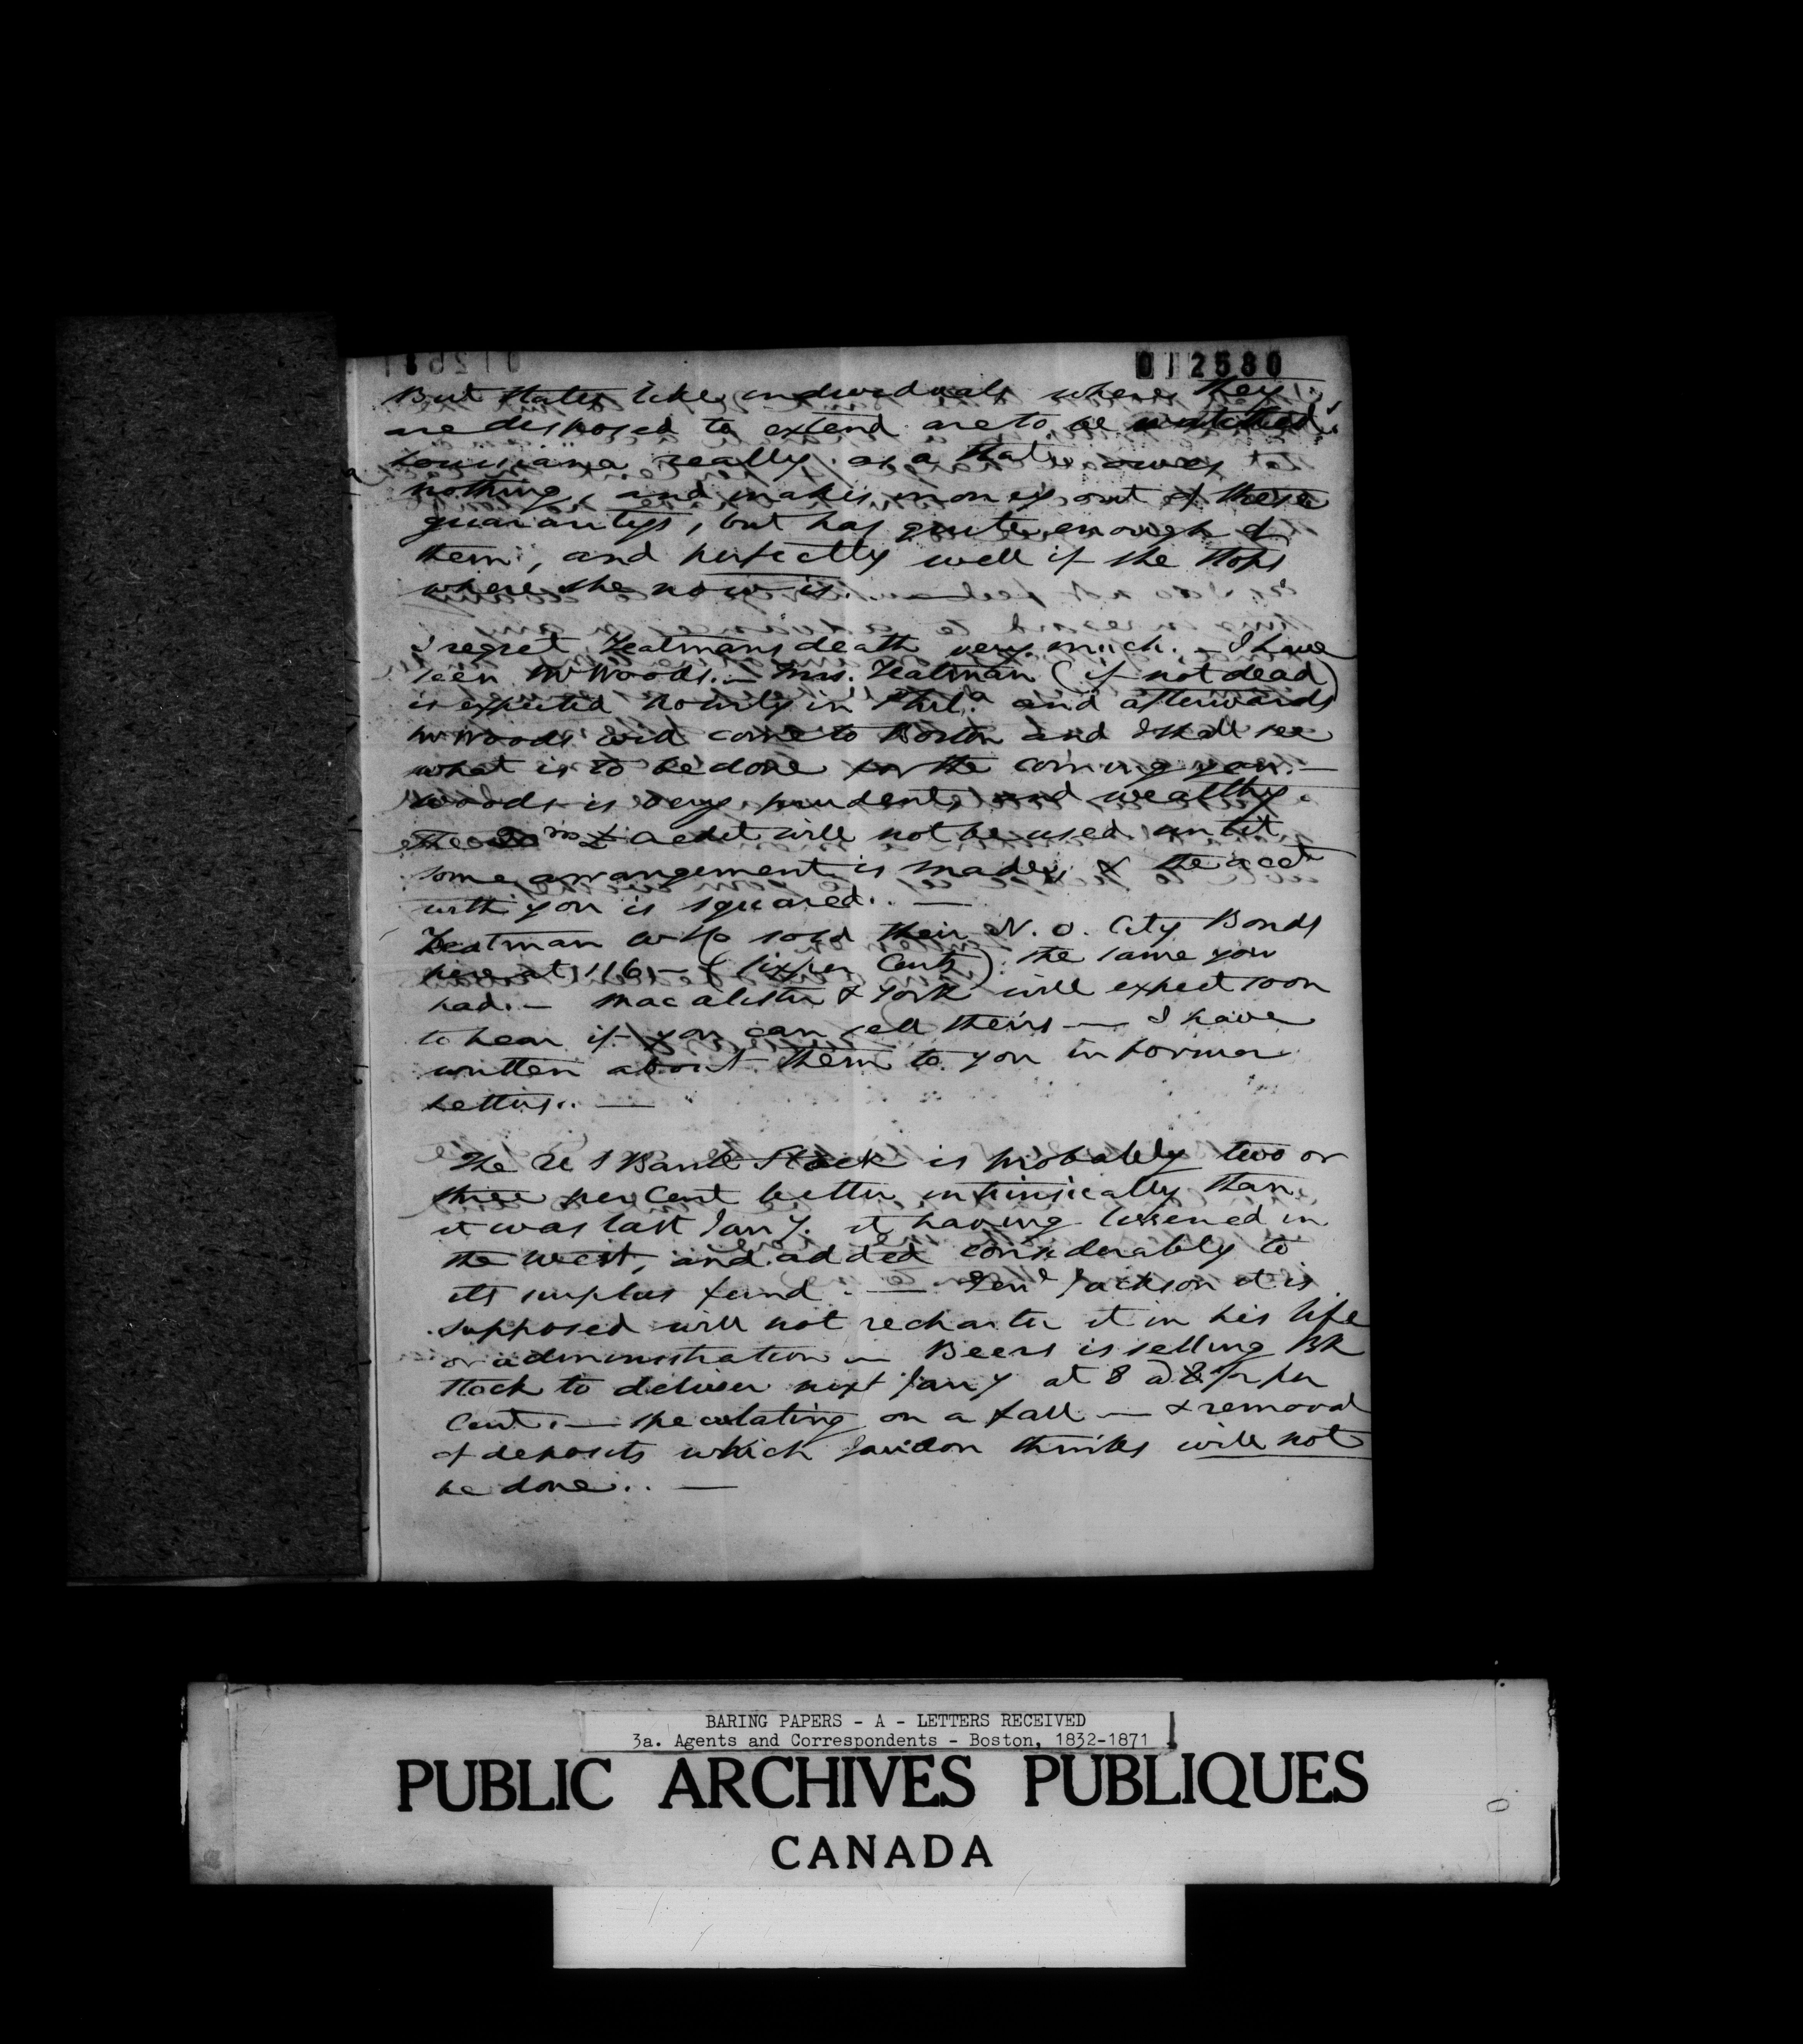 012580
But States like individuals where they
are disposed to extend are to be watched.
Louisiana really as a State owes
nothing, and makes money out of these
guarantys, but has quite enough of
them, and perfectly well if she stops
where she now is.
I regret Yeatmans death very much. — I have
seen Mr Woods. — Mrs. Yeatman (if not dead)
is expected hourly in Phila and afterwards
Mr Woods will come to Boston and I shall see
what is to be done for the coming year. —
Woods is very prudent, and wealthy.
The 20 m £ credit will not be used until
some arrangement is made, & the acct
with you is squared. . —
Yeatman W & Co sold their N. O. City Bonds
here at 116 — (six per Cents) the same you
had. — Macalister & York will expect soon
to hear if you can sell theirs — I have
written about them to you in former
letters. . —
The U S Bank Stock is probably two or
three per Cent better intrinsically than
it was last Jany. it having lessened in
the West, and added considerably to
its surplus fund. — Genl Jackson it is
supposed will not recharter it in his life
or administration — Beers is selling Bk
Stock to deliver next Jany at 8 @ 8 1/2 per
Cent. — speculating on a fall — & removal
of deposits which Jaudon thinks will not
be done. . —
BARING PAPERS - A - LETTERS RECEIVED
3a. Agents and Correspondents - Boston, 1832-1871
PUBLIC ARCHIVES PUBLIQUES
CANADA